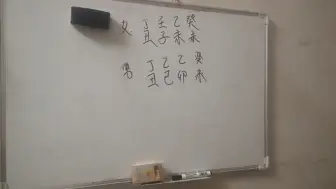 女 丁 壬 乙 癸
丑 子 未 未
男 丁 乙 乙 癸
丑 巳 卯 未